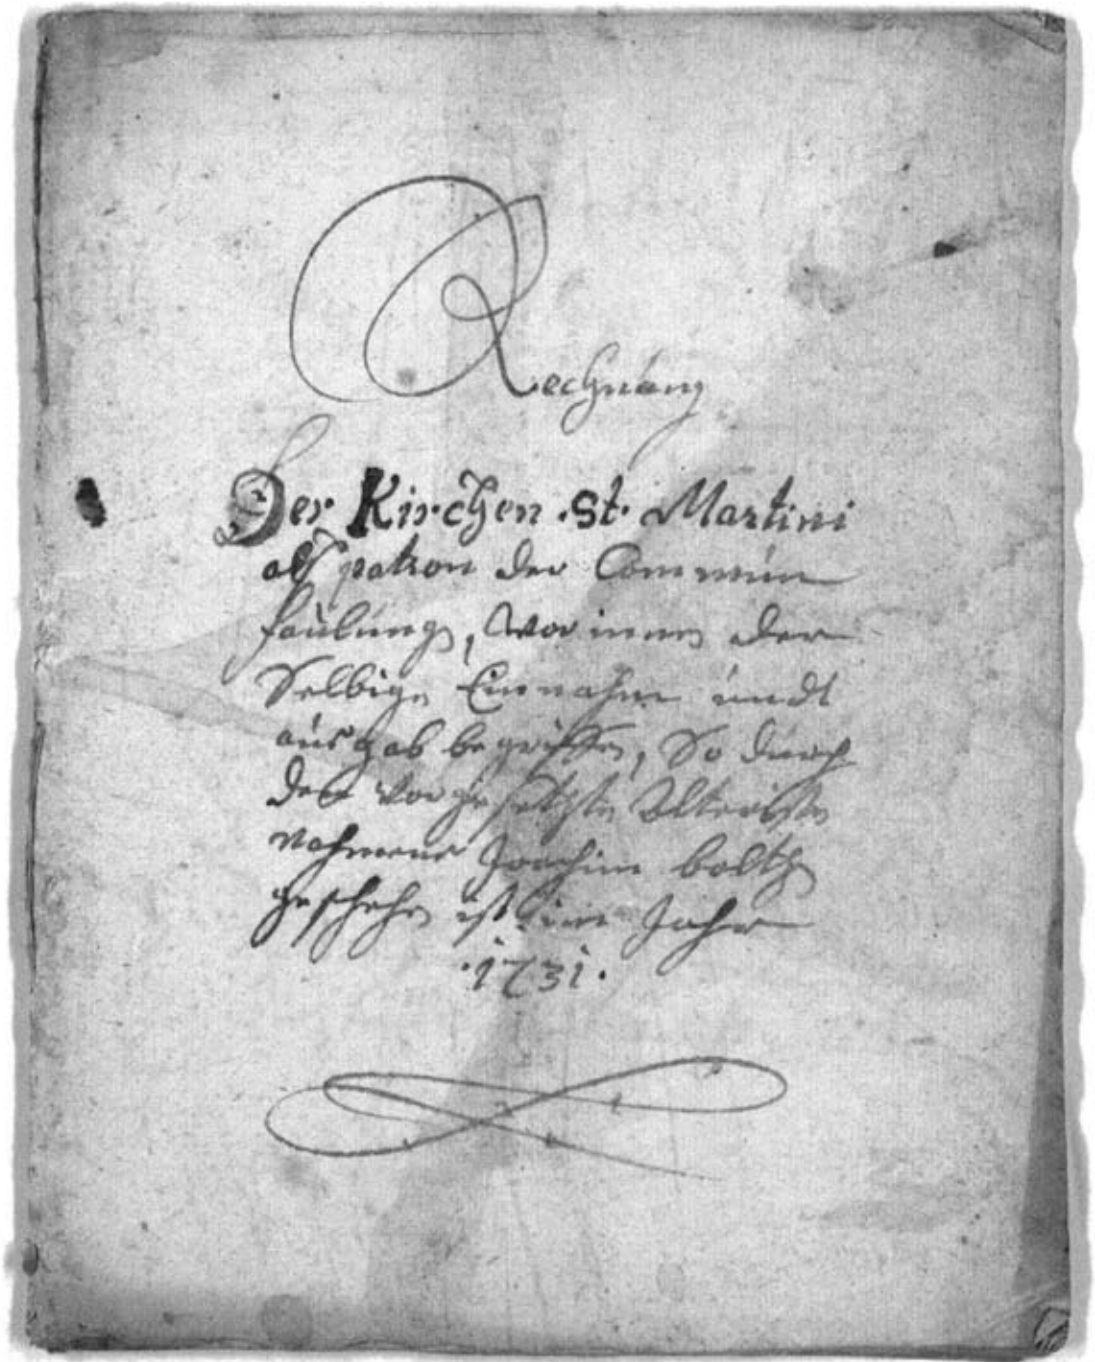 Rechnung
Der Kirchen St. Martini
alß patron der Commun
Faulung, Worinnen der
Selbige Einnahm undt
ausgab begriffen, So durch
den Vorgesetzten Elteristen
nahmens Joachim boltz
geschehen ist im Jahr
.1731.